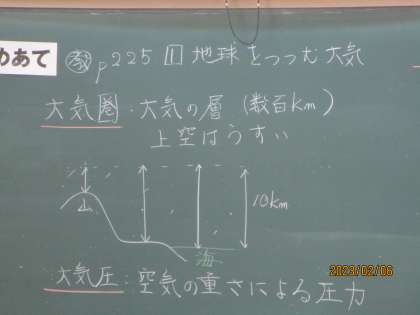 めあて
教 p225 1 地球をつつむ大気
大気圏：大気の層（数百km）
上空はうすい
山
10km
海
大気圧：空気の重さによる圧力
2023/02/06